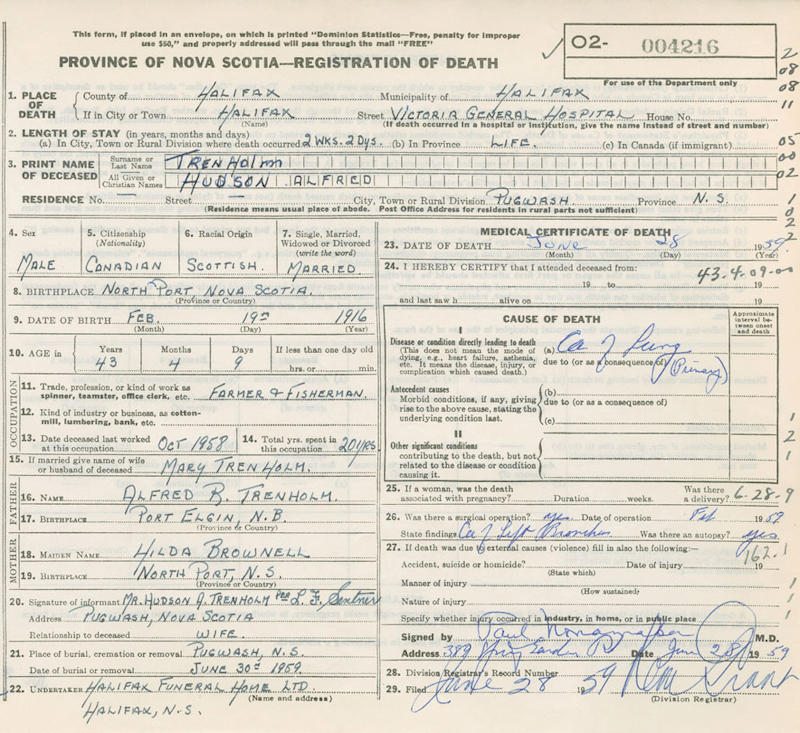 This form, if placed in an envelope, on which is printed "Dominion Statistics—Free, penalty for improper
use $50," and properly addressed will pass through the mail "FREE"
PROVINCE OF NOVA SCOTIA—REGISTRATION OF DEATH
O2- 004216
For use of the Department only
2
08
08
11
05
00
02
1
0
2
2
1. PLACE OF DEATH County of HALIFAX Municipality of HALIFAX
If in City or Town HALIFAX Street VICTORIA GENERAL HOSPITAL House No.
(Name) (If death occurred in a hospital or institution, give the name instead of street and number)
2. LENGTH OF STAY (in years, months and days)
(a) In City, Town or Rural Division where death occurred 2 WKS. 2 DYS. (b) In Province LIFE. (c) In Canada (if immigrant)
3. PRINT NAME OF DECEASED
Surname or Last Name TRENHOLM
All Given or Christian Names HUDSON ALFRED
RESIDENCE No. — Street — City, Town or Rural Division PUGWASH Province N.S.
(Residence means usual place of abode. Post Office Address for residents in rural parts not sufficient)
4. Sex MALE
5. Citizenship (Nationality) CANADIAN
6. Racial Origin SCOTTISH.
7. Single, Married, Widowed or Divorced (write the word) MARRIED.
8. BIRTHPLACE NORTH PORT, NOVA SCOTIA.
(Province or Country)
9. DATE OF BIRTH FEB. 19TH 1916
(Month) (Day) (Year)
10. AGE in Years 43 Months 4 Days 9 If less than one day old hrs. or min.
OCCUPATION
11. Trade, profession, or kind of work as spinner, teamster, office clerk, etc. FARMER & FISHERMAN.
12. Kind of industry or business, as cotton-mill, lumbering, bank, etc.
13. Date deceased last worked at this occupation OCT 1958
14. Total yrs. spent in this occupation 20 YRS.
15. If married give name of wife or husband of deceased MARY TRENHOLM.
FATHER
16. NAME ALFRED R. TRENHOLM.
17. BIRTHPLACE PORT ELGIN, N.B.
(Province or Country)
MOTHER
18. MAIDEN NAME HILDA BROWNELL
19. BIRTHPLACE NORTH PORT, N.S.
(Province or Country)
20. Signature of informant MR. HUDSON A. TRENHOLM PER L. F.
Address PUGWASH, NOVA SCOTIA
Relationship to deceased WIFE.
21. Place of burial, cremation or removal PUGWASH, N.S.
Date of burial or removal JUNE 30TH 1959.
22. UNDERTAKER HALIFAX FUNERAL HOME LTD.
(Name and address)
HALIFAX, N.S.
MEDICAL CERTIFICATE OF DEATH
23. DATE OF DEATH June 28 1959
(Month) (Day) (Year)
24. I HEREBY CERTIFY that I attended deceased from: 43-4-09-00
19 to 19
and last saw h alive on 19
CAUSE OF DEATH
Approximate interval between onset and death
I
Disease or condition directly leading to death
(This does not mean the mode of dying, e.g., heart failure, asthenia, etc. It means the disease, injury, or complication which caused death.)
(a) Ca of Lung
due to (or as a consequence of) (Primary)
Antecedent causes
Morbid conditions, if any, giving rise to the above cause, stating the underlying condition last.
(b)
due to (or as a consequence of)
(c)
II
Other significant conditions
contributing to the death, but not related to the disease or condition causing it.
1
2
1
25. If a woman, was the death associated with pregnancy? Duration weeks. Was there a delivery? 6-28-9
26. Was there a surgical operation? yes Date of operation Feb 1959
State findings Ca of Left Bronchus Was there an autopsy? yes
27. If death was due to external causes (violence) fill in also the following:— 162.1
Accident, suicide or homicide? Date of injury 19
(State which)
Manner of injury 1
(How sustained)
Nature of injury 1
Specify whether injury occurred in industry, in home, or in public place 1
Signed by Paul M.D.
Address 389 Spring Garden Rd Date June 28 1959
28. Division Registrar's Record Number
29. Filed June 28 1959
(Division Registrar)